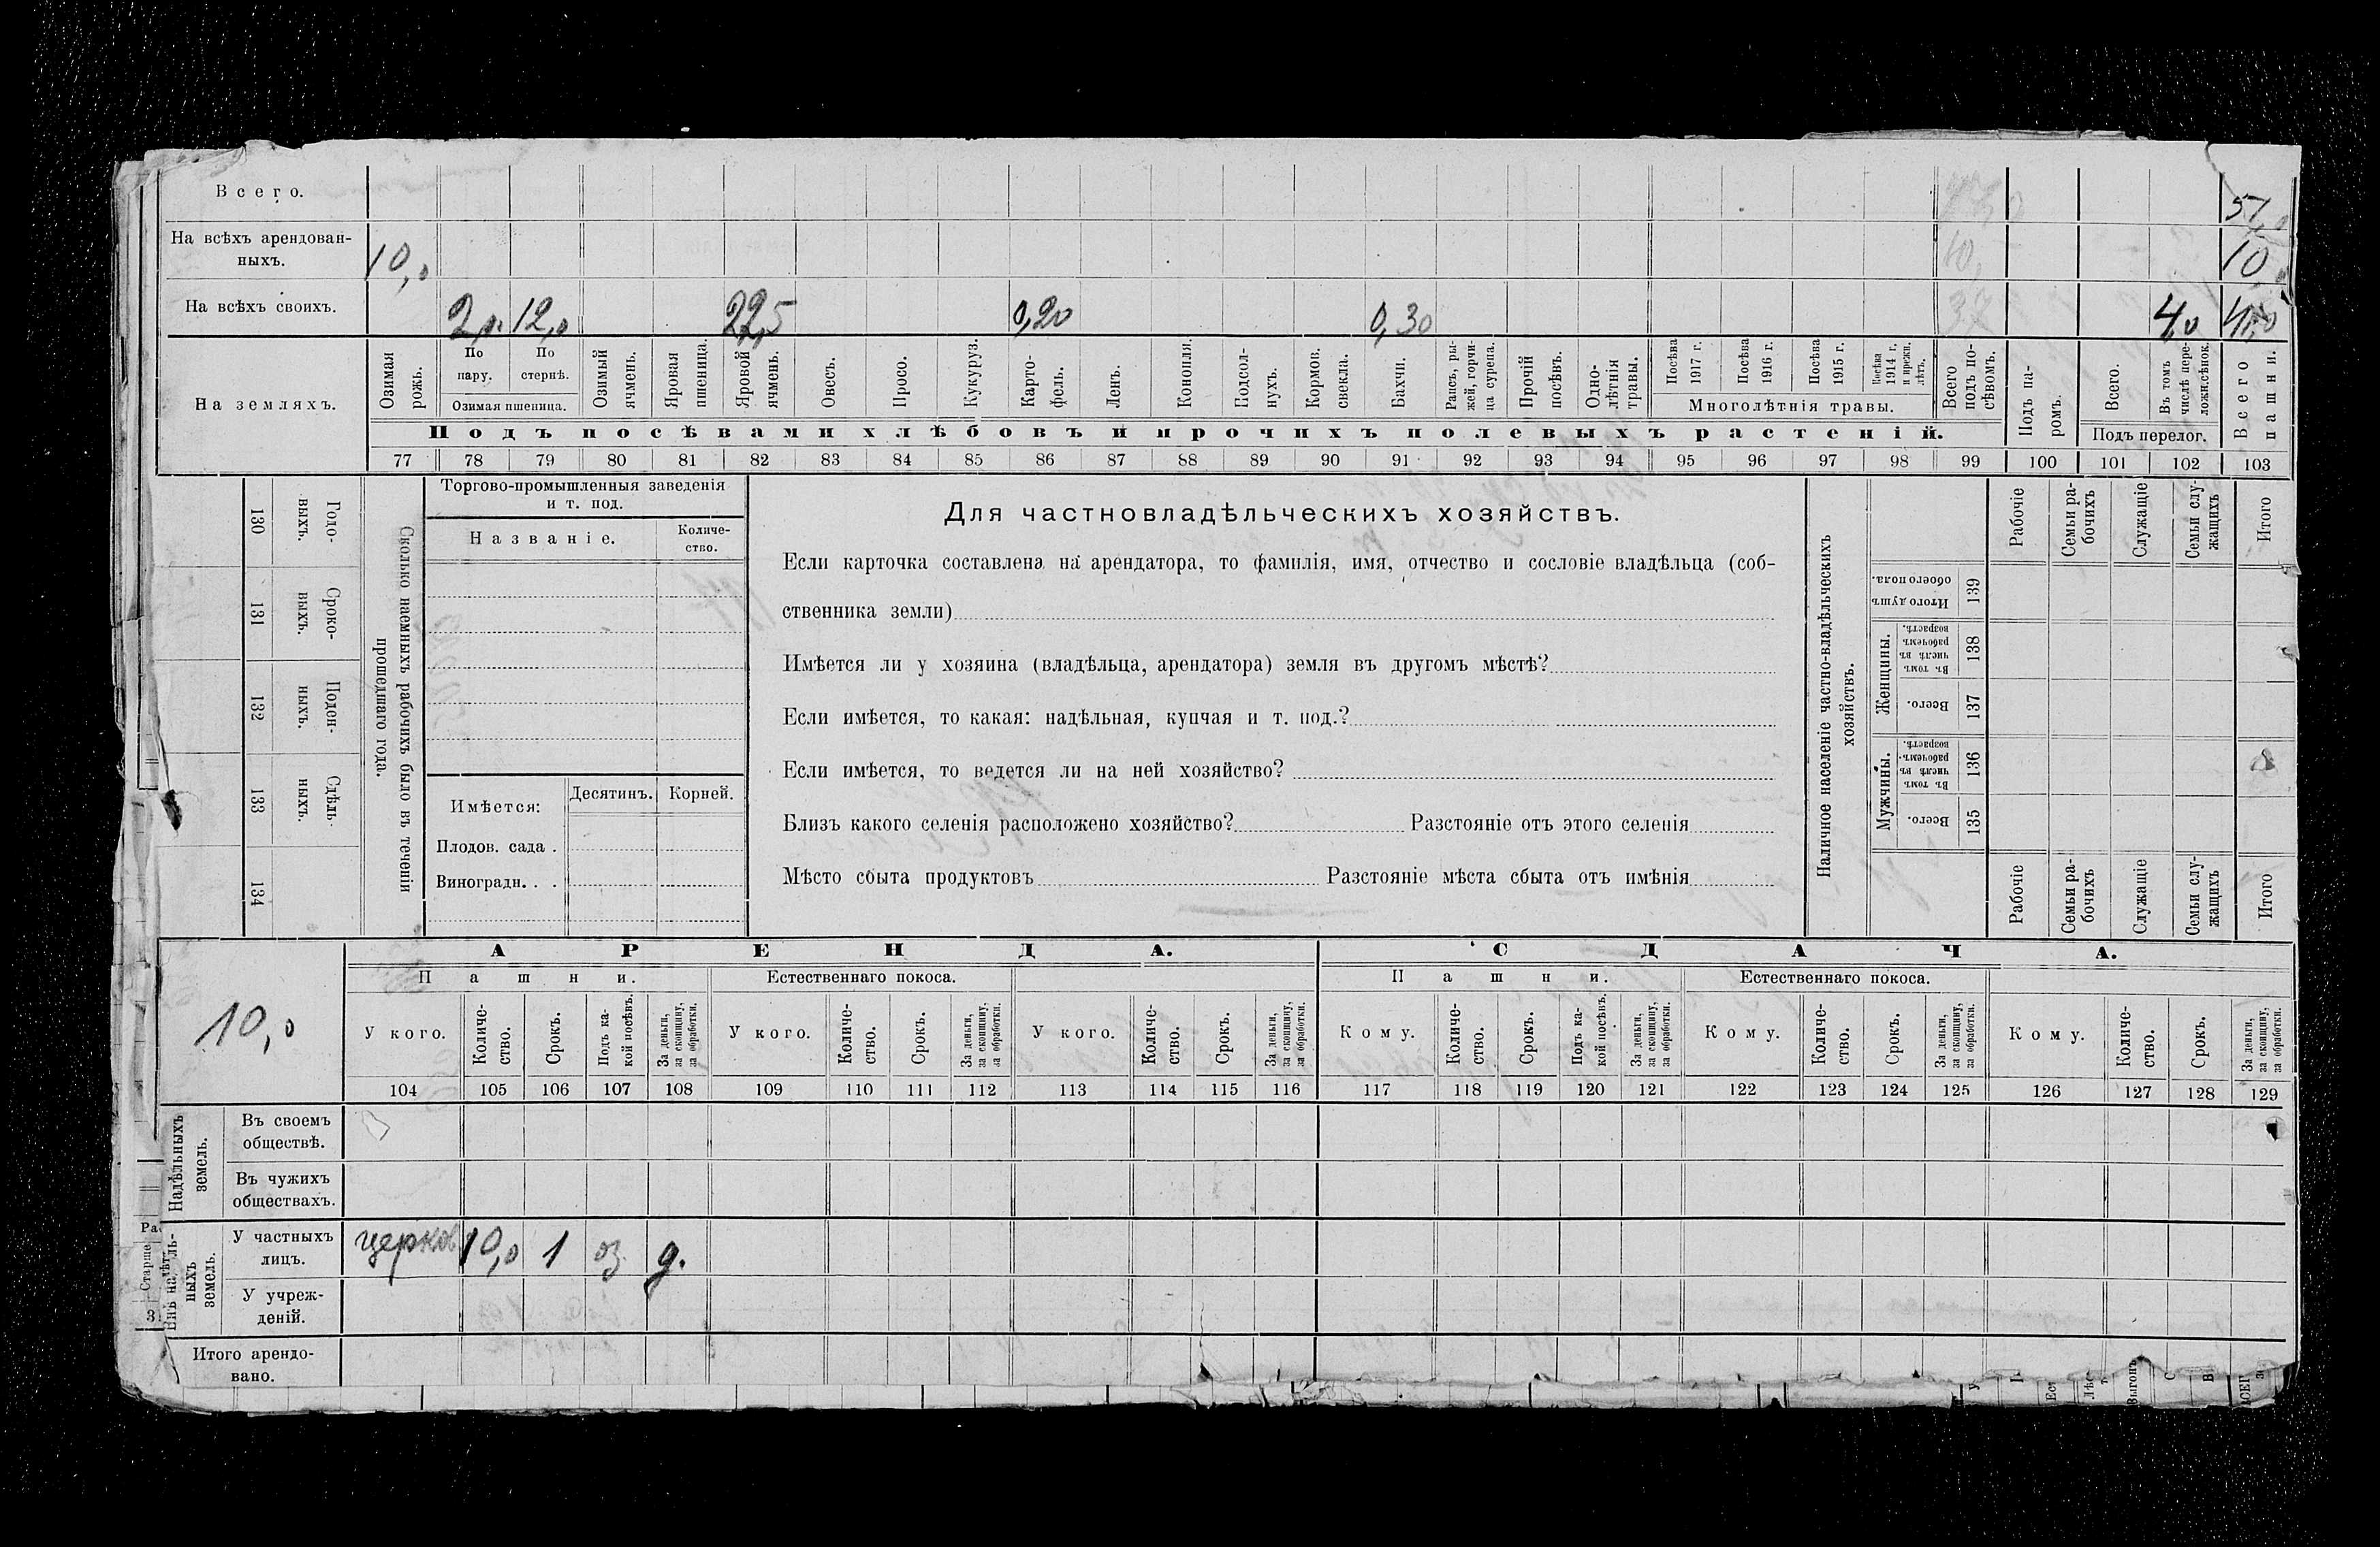 Всего. 51,0
На всѣхъ арендован-
ныхъ. 10,0 10, 10
На всѣхъ своихъ. 12,0 22,5 0,20 0,30 37 4,0
На земляхъ.
Озимая рожь.
По пару.
По стернѣ.
Озимая пшеница.
Озимый ячмень.
Яровая пшеница.
Яровой ячмень.
Овесъ.
Просо.
Кукуруз.
Карто-
фель.
Ленъ.
Конопля.
Подсол-
нухъ.
Кормов.
свекла.
Бахчи.
Рапсъ, ры-
жей, горчи-
ца сурепа.
Прочій
посѣвъ.
Одно-
лѣтнія
травы.
Посѣва
1917 г.
Посѣва
1916 г.
Посѣва
1915 г.
Посѣва
1914 г.
и прежн.
лѣтъ.
Многолѣтнія травы.
Всего
подъ по-
сѣвомъ.
Подъ па-
ромъ.
Всего.
Въ томъ
числѣ пере-
лож.сѣнок.
Подъ перелог.
Всего
пашни.
Подъ посѣвами хлѣбовъ и прочихъ полевыхъ растеній.
77 78 79 80 81 82 83 84 85 86 87 88 89 90 91 92 93 94 95 96 97 98 99 100 101 102 103
Сколько наемныхъ рабочихъ было въ теченіи
прошедшаго года.
Годо-
выхъ.
130
Сроко-
выхъ.
131
Поден-
ныхъ.
132
Сдѣль-
ныхъ.
133
134
Торгово-промышленныя заведенія
и т. под.
Названіе.
Количе-
ство.
Имѣется: Десятинъ. Корней.
Плодов. сада .
Виноградн. . .
Для частновладѣльческихъ хозяйствъ.
Если карточка составлена на арендатора, то фамилія, имя, отчество и сословіе владѣльца (соб-
ственника земли)
Имѣется ли у хозяина (владѣльца, арендатора) земля въ другомъ мѣстѣ?
Если имѣется, то какая: надѣльная, купчая и т. под.?
Если имѣется, то ведется ли на ней хозяйство?
Близъ какого селенія расположено хозяйство? Разстояніе отъ этого селенія
Мѣсто сбыта продуктовъ Разстояніе мѣста сбыта отъ имѣнія
Наличное населеніе частно-владѣльческихъ
хозяйствъ.
Рабочіе
Семьи ра-
бочихъ
Служащіе
Семьи слу-
жащихъ
Итого
Итого душъ
обоего пола.
139
Женщины.
Въ томъ
числѣ въ
рабочемъ
возрастѣ.
138
Всего.
137
Мужчины.
Въ томъ
числѣ въ
рабочемъ
возрастѣ.
136
Всего.
135
Рабочіе
Семьи ра-
бочихъ
Служащіе
Семьи слу-
жащихъ
Итого
10,0
АРЕНДА. СДАЧА.
Пашни. Естественнаго покоса. Пашни. Естественнаго покоса.
У кого.
Количе-
ство.
Срокъ.
Подъ ка-
кой посѣвъ.
За деньги,
за скопщину,
за обработки.
У кого.
Количе-
ство.
Срокъ.
За деньги,
за скопщину,
за обработки.
У кого.
Количе-
ство.
Срокъ.
За деньги,
за скопщину,
за обработки.
Кому.
Количе-
ство.
Срокъ.
Подъ ка-
кой посѣвъ.
За деньги,
за скопщину,
за обработки.
Кому.
Количе-
ство.
Срокъ.
За деньги,
за скопщину,
за обработки.
Кому.
Количе-
ство.
Срокъ.
За деньги,
за скопщину,
за обработки.
104 105 106 107 108 109 110 111 112 113 114 115 116 117 118 119 120 121 122 123 124 125 126 127 128 129
Надѣльныхъ
земель.
Въ своемъ
обществѣ.
Въ чужихъ
обществахъ.
Внѣ надѣль-
ныхъ
земель.
У частныхъ
лицъ.
церков 10,0 1 оз. д.
У учреж-
деній.
Итого арендо-
вано.
Старше